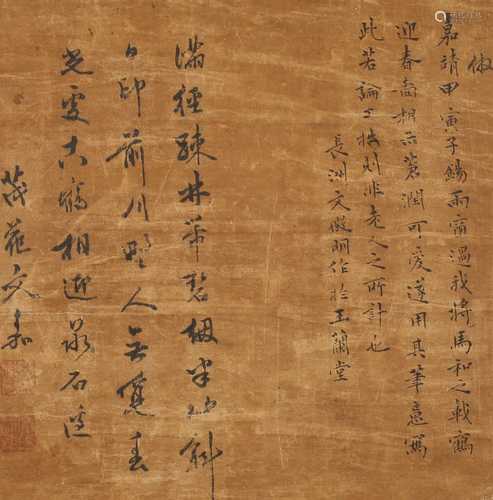 倣
嘉靖甲寅子錫雨窗過我将馬和之載鶴
迎春圖相示蒼潤可愛遂用其筆意寫
此若論工拙則非老人之所計也
長洲文徵明作於玉蘭堂
滿徑疎林帶碧烟半山斜
日印前川野人無
光更古鶴相逐泉石邊
茂苑文嘉